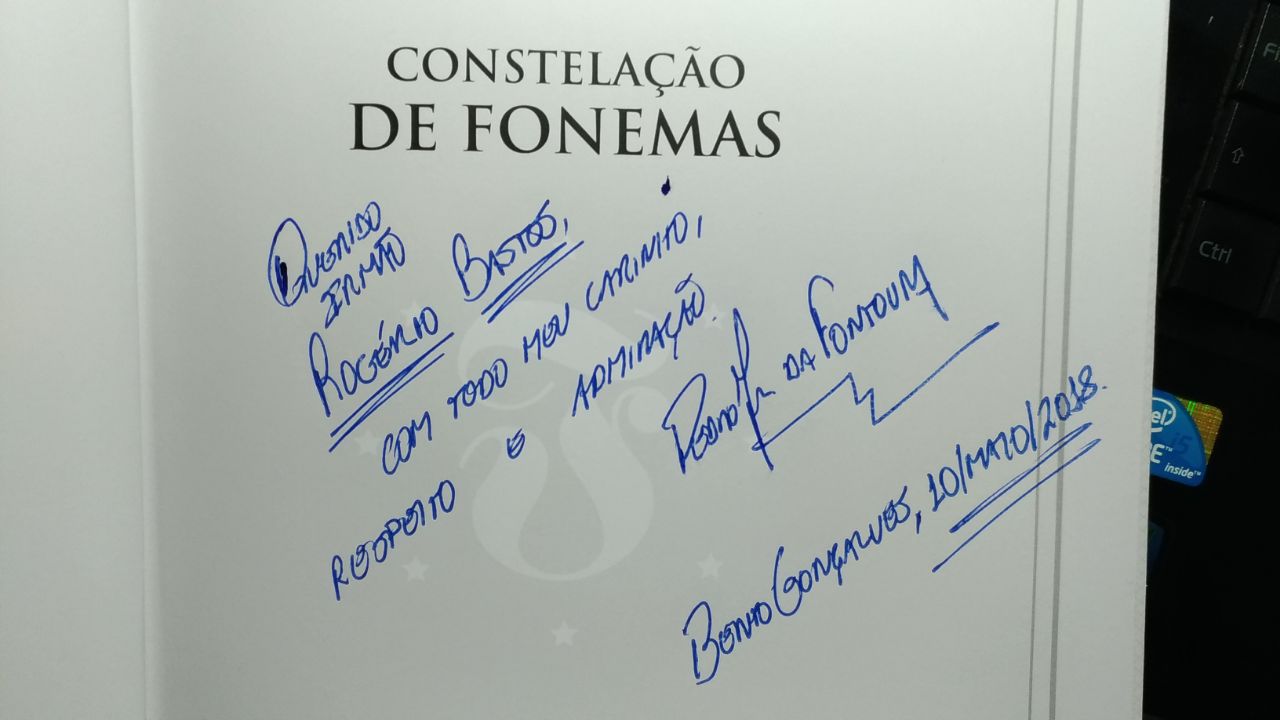 CONSTELAÇÃO
DE FONEMAS
QUERIDO
IRMÃO
ROGÉRIO BASTOS,
COM TODO MEU CARINHO,
RESPEITO E ADMIRAÇÃO.
PEDRO JR DA FONTOURA
BENTO GONÇALVES, 10/MAIO/2018.
Ctrl
intel
i5
inside™